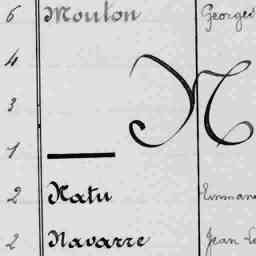 6 Mouton Georges
4
N
3
1
2 Natu Emman
2 Navarre Jean Lo